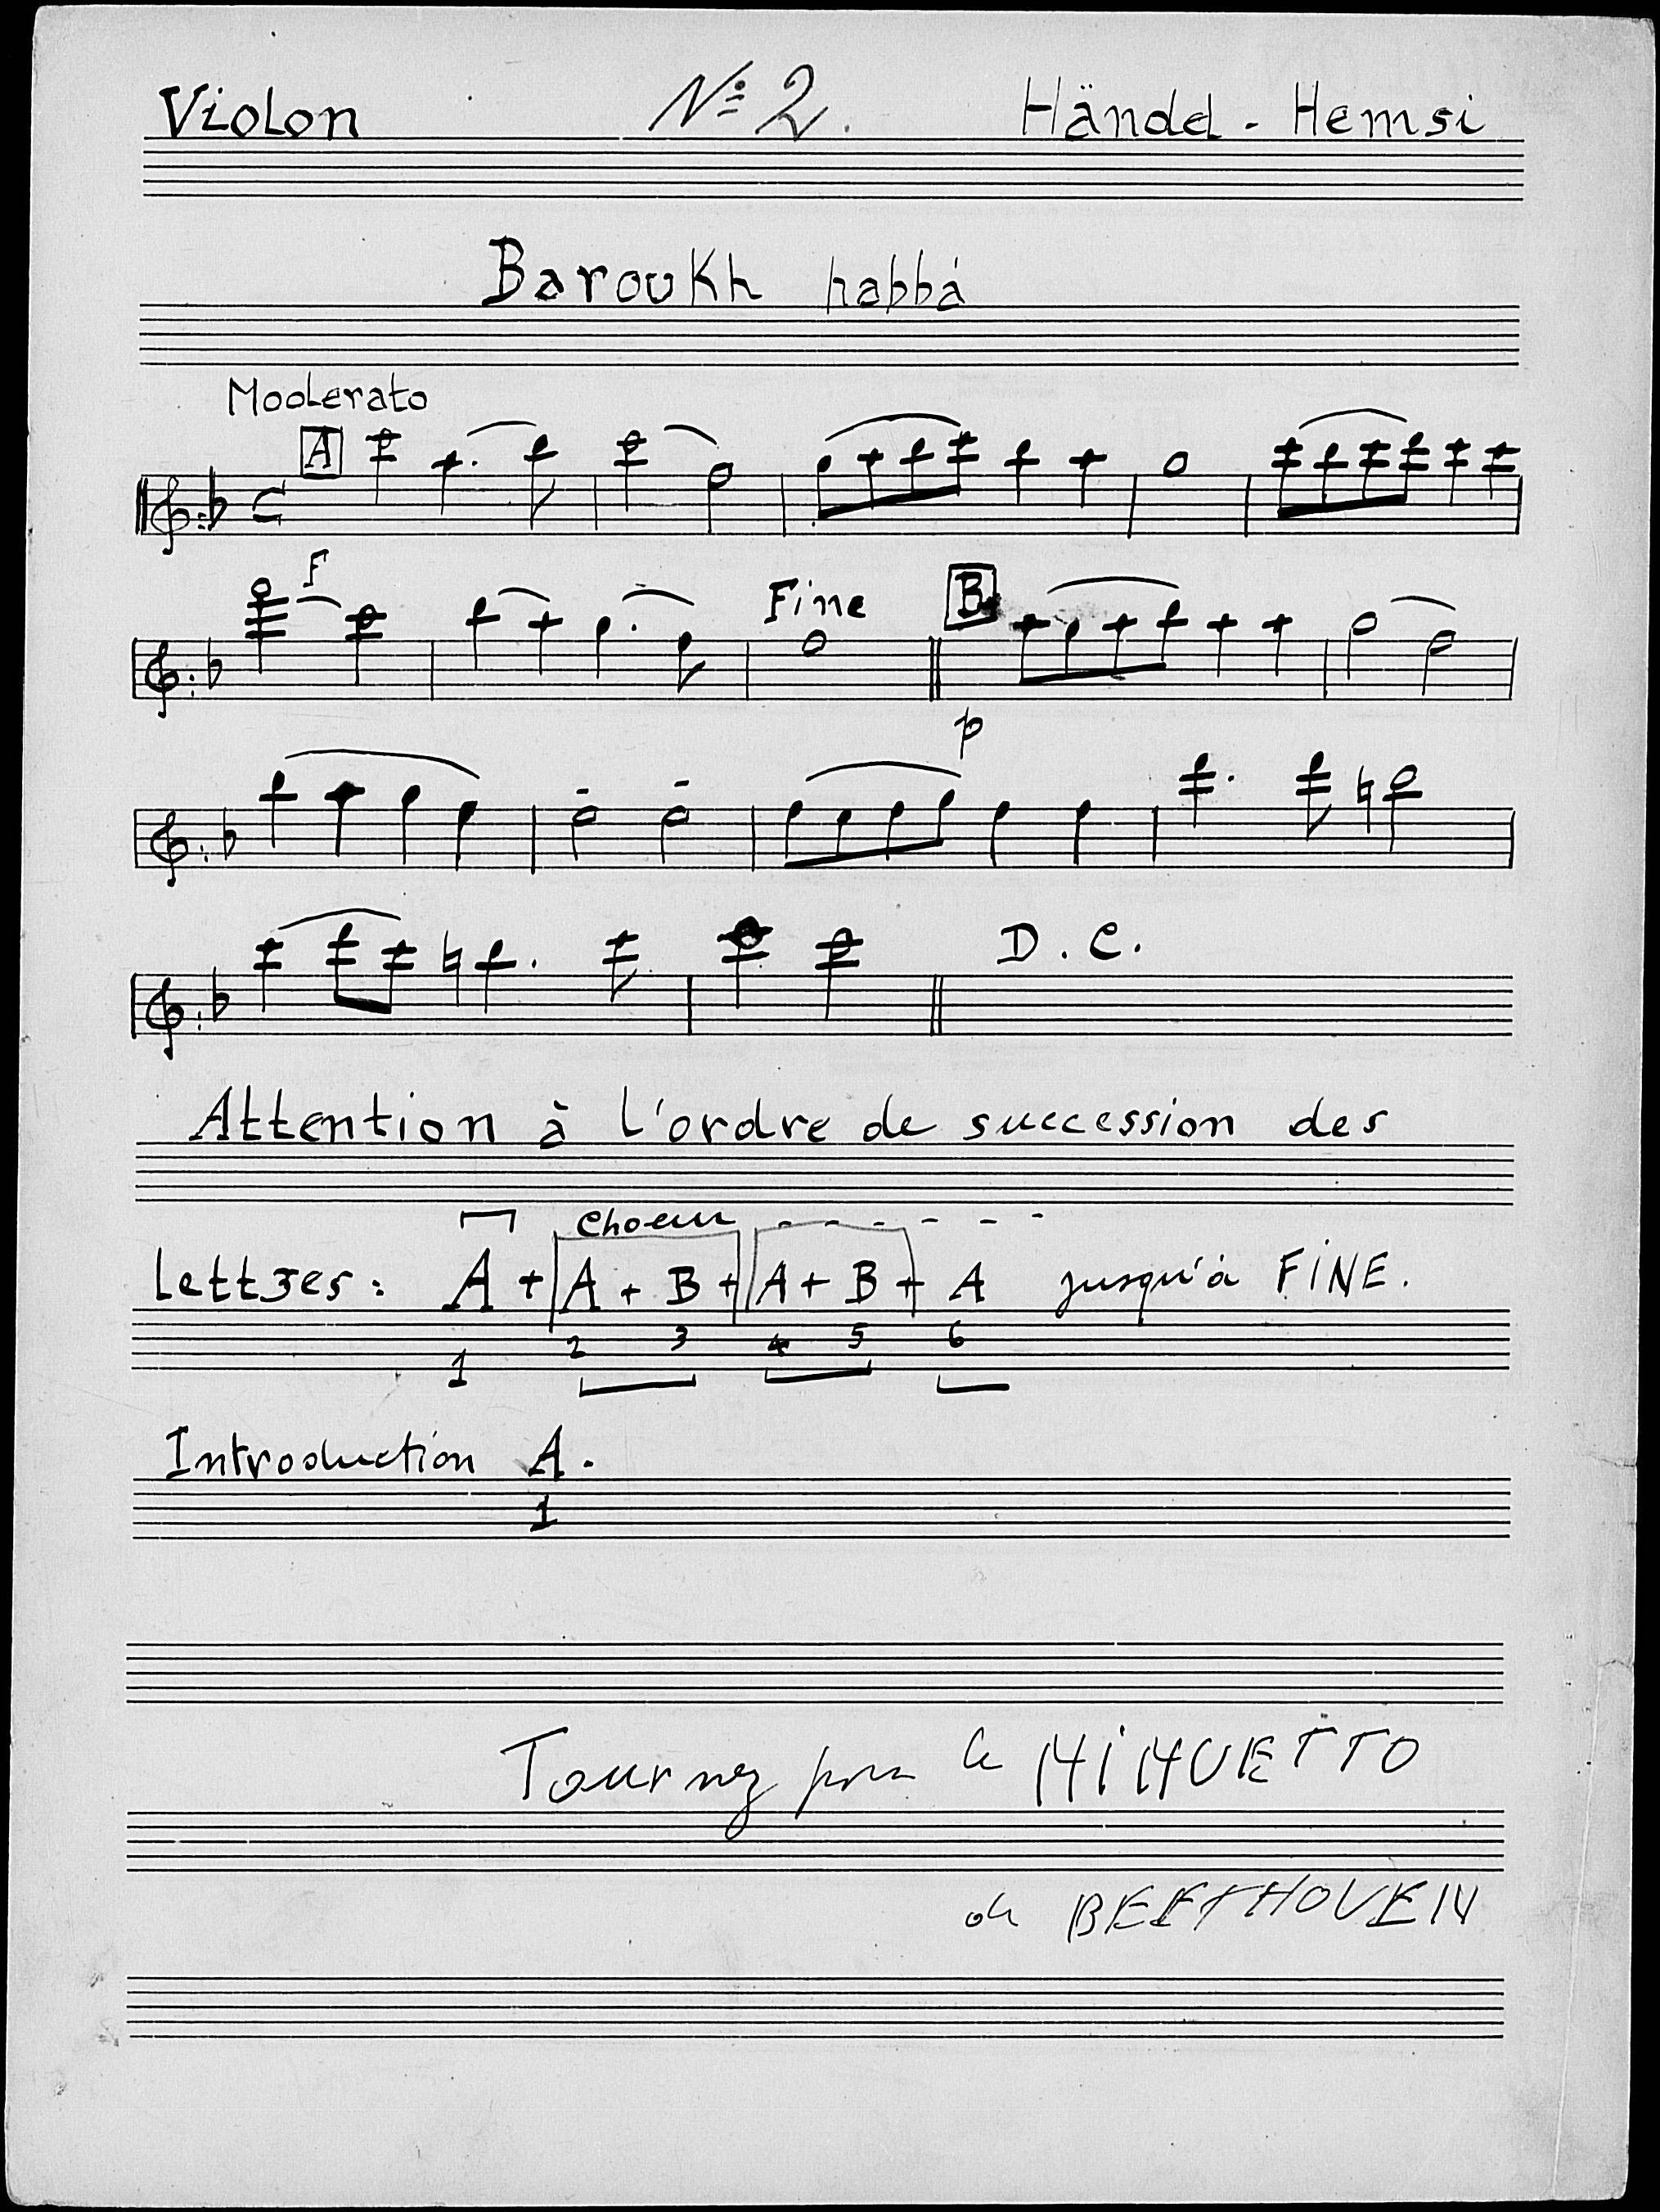 Violon Nº 2. Händel - Hemsi
Baroukh habbá
Moderato
A
F
Fine B
p
D. C.
Attention à l'ordre de succession des
choeur - - - - - -
lettres: A + A + B + A + B + A jusqu'à FINE.
1 2 3 4 5 6
Introduction A.
1
Tournez pour le MINUETTO
de BEETHOVEN